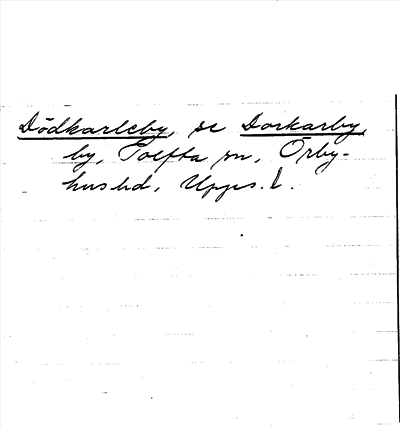 Dödkarleby, se Dorkarby,
by, Tolfta sn, Örby-
hus hd, Upps. l.